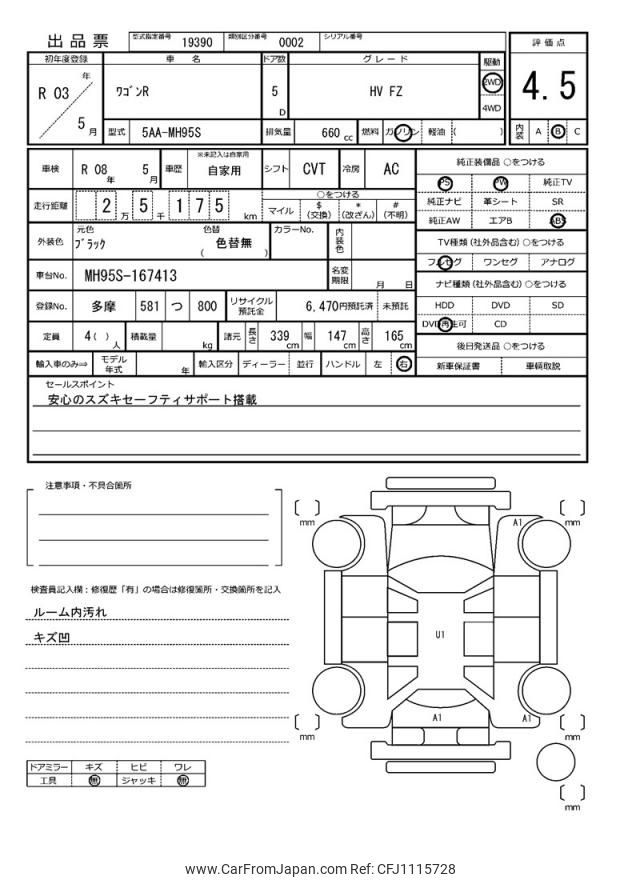 出品票 型式指定番号 19390 類別区分番号 0002 シリアル番号
評価点
4.5
内装 A B C
初年度登録 車名 ドア数 グレード 駆動
R 03 年 5 月 ワゴンR 5 D HV FZ 2WD 4WD
型式 5AA-MH95S 排気量 660 cc 燃料 ガソリン 軽油 ( )
車検 R 08 年 5 月 車歴 ※未記入は自家用 自家用 シフト CVT 冷房 AC
走行距離 2 万 5 千 1 7 5 km ○をつける マイル $ (交換) * (改ざん) # (不明)
外装色 元色 ブラック 色替 ( 色替無 ) カラーNo. 内装色
車台No. MH95S-167413 名変期限 月 日
登録No. 多摩 581 つ 800 リサイクル預託金 6,470円預託済 未預託
定員 4 ( ) 人 積載量 kg 諸元 長さ 339 cm 幅 147 cm 高さ 165 cm
輸入車のみ⇒ モデル年式 年 輸入区分 ディーラー 並行 ハンドル 左 右
純正装備品 ○をつける
PS PW 純正TV
純正ナビ 革シート SR
純正AW エアB ABS
TV種類 (社外品含む) ○をつける
フルセグ ワンセグ アナログ
ナビ種類 (社外品含む) ○をつける
HDD DVD SD
DVD再生可 CD
後日発送品 ○をつける
新車保証書 車輌取説
セールスポイント
安心のスズキセーフティサポート搭載
注意事項・不具合箇所
検査員記入欄：修復歴「有」の場合は修復箇所・交換箇所を記入
ルーム内汚れ
キズ凹
ドアミラー キズ ヒビ ワレ
工具 無 ジャッキ 無
[ ] mm A1 [ ] mm
U1
[ ] mm A1 A1 [ ] mm
[ ] mm
www.CarFromJapan.com Ref: CFJ1115728